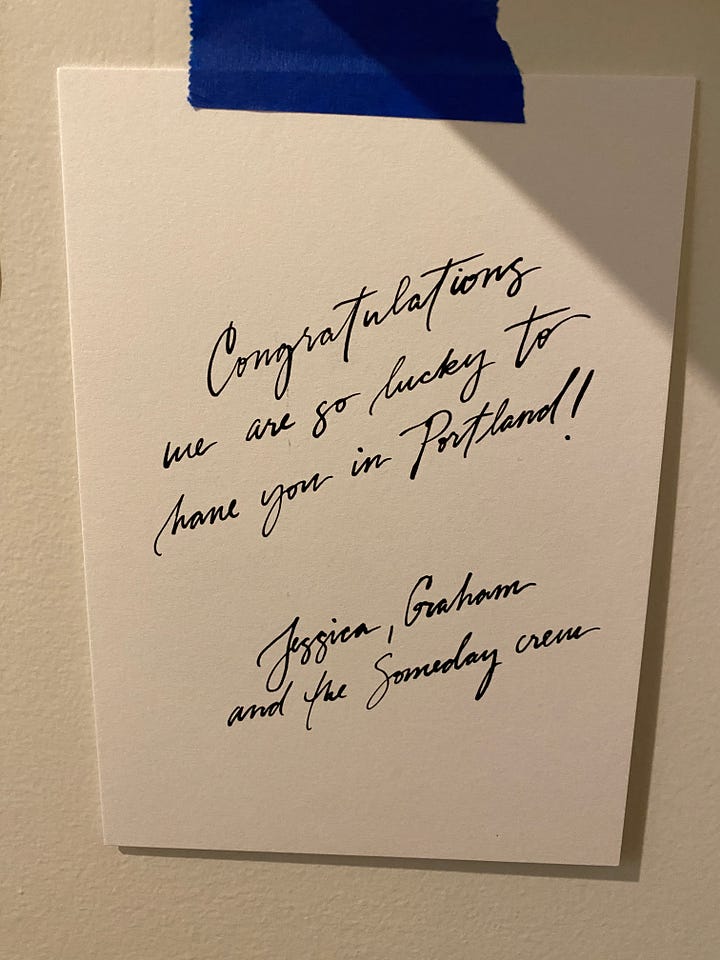 Congratulations
we are so lucky to
have you in Portland!
Jessica, Graham
and the Someday crew